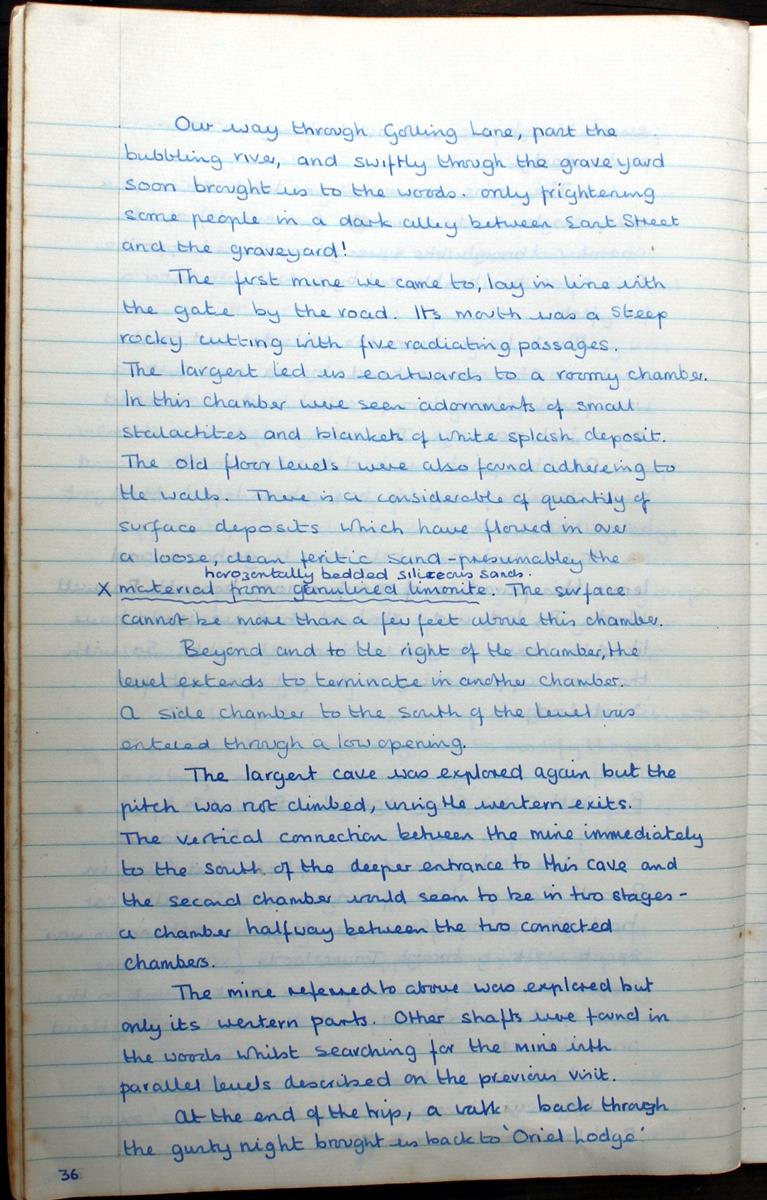 Our way through Gosling Lane, past the
bubbling river, and swiftly through the graveyard
soon brought us to the woods. only frightening
some people in a dark alley between East Street
and the graveyard!
The first mine we came to, lay in line with
the gate by the road. Its mouth was a steep
rocky cutting with five radiating passages.
The largest led us eastwards to a roomy chamber.
In this chamber were seen adornments of small
stalactites and blankets of white splash deposit.
The old floor levels were also found adhereing to
the walls. There is a considerable of quantity of
surface deposits which have flowed in over
a loose, clean feritic sand - presumabley the
horozontally bedded siliceous sands.
X material from ganulined limonite. The surface
cannot be more than a few feet above this chamber.
Beyond and to the right of the chamber, the
level extends to terminate in another chamber.
A side chamber to the south of the level was
entered through a low opening.
The largest cave was explored again but the
pitch was not climbed, using the western exits.
The vertical connection between the mine immediately
to the south of the deeper entrance to this cave and
the second chamber would seem to be in two stages -
a chamber halfway between the two connected
chambers.
The mine referred to above was explored but
only its western parts. Other shafts were found in
the woods whilst searching for the mine with
parallel levels described on the previous visit.
At the end of the trip, a walk back through
the gusty night brought us back to 'Oriel Lodge'
36